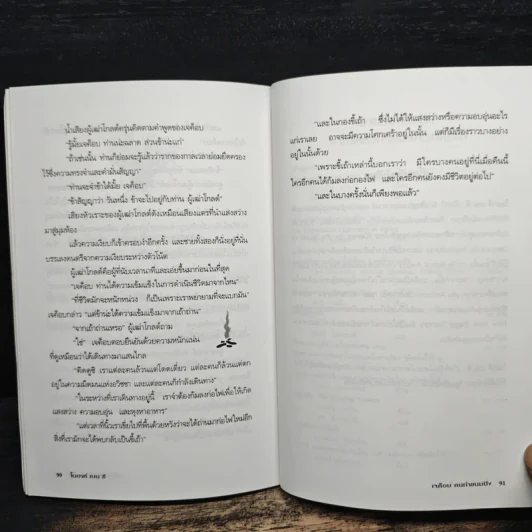 น้ำเสียงผู้เฒ่าโกลด์ครุ่นคิดตามคำพูดของเจค็อบ
"รู้มั้ยเจค็อบ ท่านน่ะฉลาด ส่วนข้าน่ะแก่"
"ถ้าเช่นนั้น ท่านก็ย่อมจะรู้แล้วว่ารากของกาลเวลาย่อมยึดครอง
ไว้ซึ่งความทรงจำและคำมั่นสัญญา"
"ท่านจะจำข้าได้มั้ย เจค็อบ"
"ข้าสัญญาว่า วันหนึ่ง ข้าจะไปอยู่กับท่าน ผู้เฒ่าโกลด์"
เสียงหัวเราะของผู้เฒ่าโกลด์ดังเหมือนเสียงแตรที่นำแสงสว่าง
มาสู่มุมห้อง
แล้วความเงียบก็เข้าครอบงำอีกครั้ง และชายทั้งสองก็นั่งอยู่ที่นั่น
บรรเลงดนตรีจากความเงียบระหว่างตัวโน้ต
ผู้เฒ่าโกลด์คือผู้ที่นับเวลานาทีและเอ่ยขึ้นมาก่อนในที่สุด
"เจค็อบ ท่านได้ความเข้มแข็งในการดำเนินชีวิตมาจากไหน"
"ที่ชีวิตมักจะหนักหน่วง ก็เป็นเพราะเราพยายามที่จะแบกมัน"
เจค็อบกล่าว "แต่ข้าน่ะได้ความเข้มแข็งมาจากเถ้าถ่าน"
"จากเถ้าถ่านเหรอ" ผู้เฒ่าโกลด์ถาม
"ใช่" เจค็อบตอบยืนยันด้วยความหนักแน่น
ที่ดูเหมือนว่าได้เดินทางมาแสนไกล
"คิดดูซิ เราแต่ละคนล้วนแต่โดดเดี่ยว แต่ละคนก็ล้วนแต่ตก
อยู่ในความมืดมนแห่งอวิชชา และแต่ละคนก็กำลังเดินทาง"
"ในระหว่างที่เราเดินทางอยู่นี้ เราจำต้องก้มลงก่อไฟเพื่อให้เกิด
แสงสว่าง ความอบอุ่น และหุงหาอาหาร"
"แต่เวลาที่นิ้วเราเขี่ยไปที่พื้นด้วยหวังว่าจะได้ถ่านมาก่อไฟใหม่อีก
สิ่งที่เรามักจะได้พบกลับเป็นขี้เถ้า"
90 โนอาห์ เบน ชี
"และในกองขี้เถ้า ซึ่งไม่ได้ให้แสงสว่างหรือความอบอุ่นอะไร
แก่เราเลย อาจจะมีความโศกเศร้าอยู่ในนั้น แต่ก็มีเรื่องราวบางอย่าง
อยู่ในนั้นด้วย
"เพราะขี้เถ้าเหล่านี้บอกเราว่า มีใครบางคนอยู่ที่นี่เมื่อคืนนี้
ใครอีกคนได้ก้มลงก่อกองไฟ และใครอีกคนยังคงมีชีวิตอยู่ต่อไป"
"และในบางครั้งนั่นก็เพียงพอแล้ว"
เจค็อบ คนทำขนมปัง 91